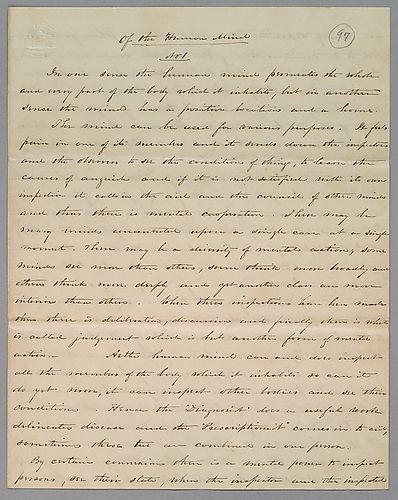 Of the Human Mind
97
No 1
In one sense the human mind permeates the whole
and every part of the body which it inhabits, but in another
sense the mind has a positive location and a home.
The mind can be used for various purposes. It feels
pain in one of its members and it sends down the inspectors
and the observers to see the condition of things, to learn the
causes of anguish and if it is not satisfied with its own
inspection it calls in the aid and the council of other minds
and thus there is mental cooperation. There may be
many minds concentrated upon a single case at a single
moment. There may be a diversity of mental action, some
minds see more than others, some think more broadly, and
others think more deeply and yet another class are more
interior than others. When these inspections have been made
then there is deliberation, discussion and finally there is what
is called judgement which is but another form of mental
action. As the human mind can and does inspect
all the members of the body which it inhabits so can it
do yet more, it can inspect other bodies and see their
conditions Hence the "Diagnosist" does a useful work
delineates disease and the "Prescriptionist" comes in to aid,
sometimes these two are combined in one person.
By certain connexions there is a mental power to inspect
persons, see their state, when the inspector and the inspected